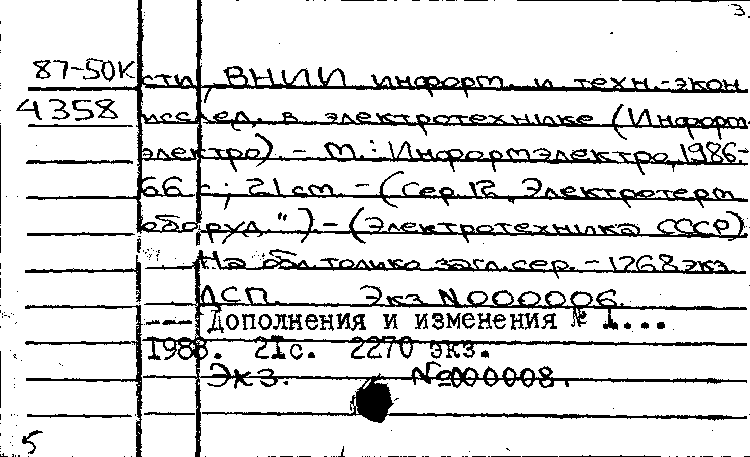 3.
87-50К сти, ВНИИ информ. и техн.-экон
4358 исслед. в электротехнике (Информ-
электро). - М.: Информэлектро, 1986.-
66 с.; 21 см. - (Сер. 12, Электротерм
оборуд.") - (Электротехника СССР).
На обл. только загл. сер. - 1268 экз.
ДСП. Экз. N 000006.
--- Дополнения и изменения № 1...
1988. 21с. 2270 экз.
Экз. №000008.
5